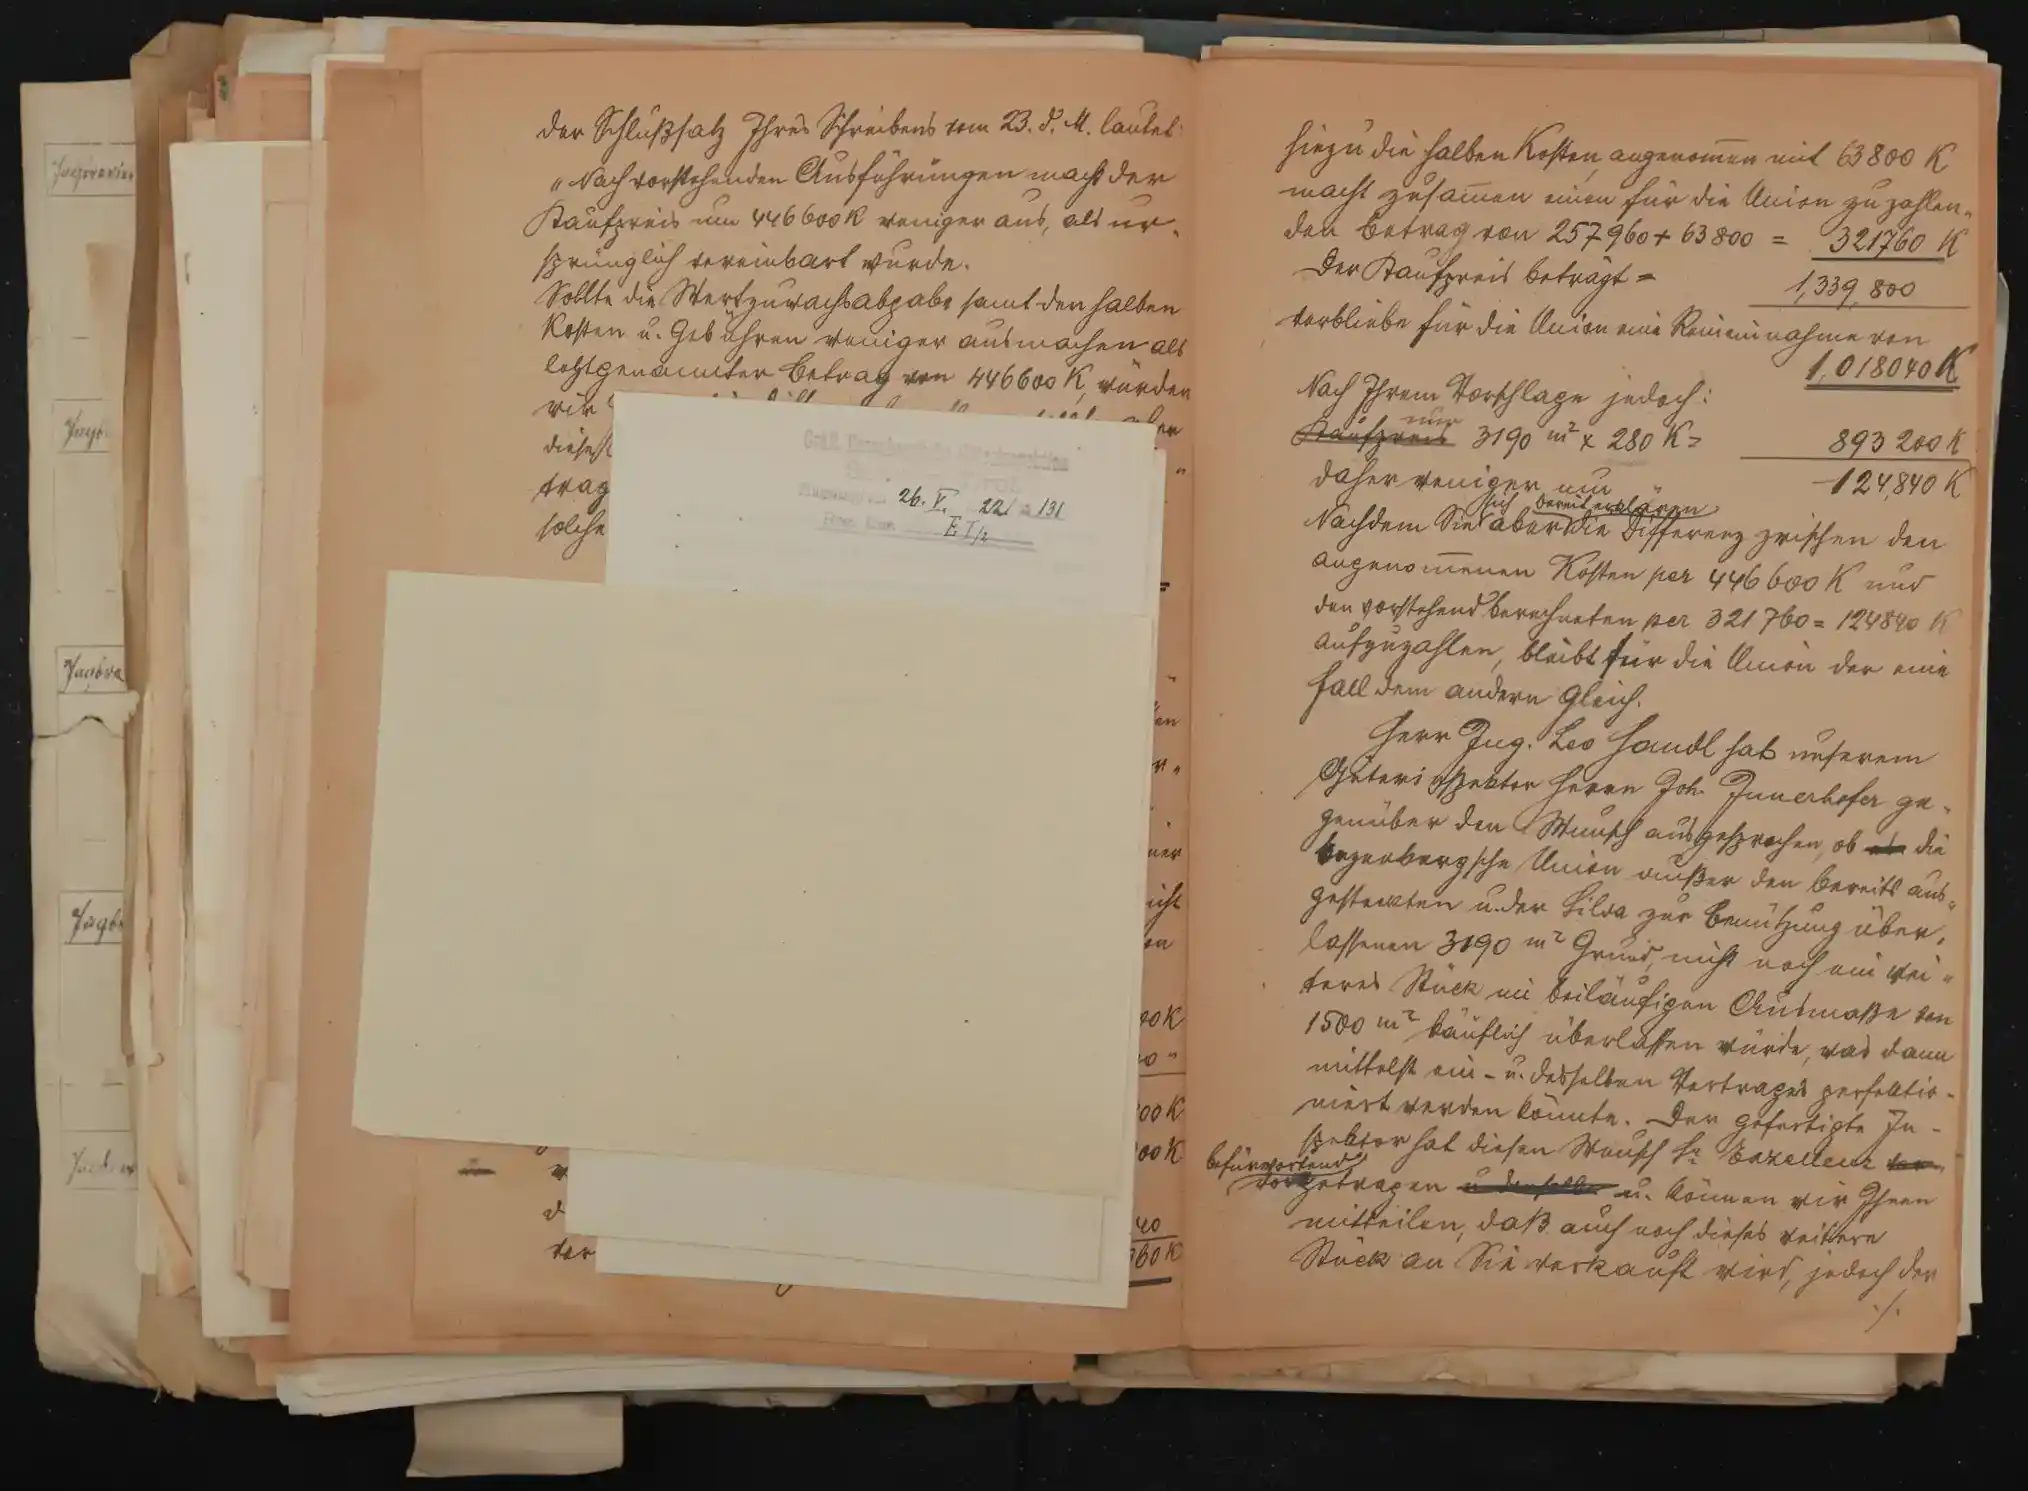 der Schlußsatz Ihres Schreibens vom 23. d. M. lautet:
„Nach vorstehenden Ausführungen macht der
Kaufpreis um 446600 K weniger aus, als ur-
sprünglich vereinbart wurde.
Sollte die Wertzuwachsabgabe samt den halben
Kosten u. Gebühren weniger ausmachen als
letztgenannter Betrag von 446600 K, würden
wir
diese
trag
solche
26. V. 22 131
E I/2
ner
icht
on
00 K
00 K
40
60 K
ter
hiezu die halben Kosten, angenom̅en mit 63800 K
macht zusam̅en einen für die Union zu zahlen-
den Betrag von 257960 + 63800 = 321760 K
Der Kaufpreis beträgt = 1,339,800
verbliebe für die Union eine Reineinnahme von
1,018040 K
Nach Ihrem Vorschlage jedoch:
nur
Kaufpreis 3190 m² x 280 K = 893200 K
daher weniger um 124,840 K
sich bereit erklären
Nachdem Sie aber die Differenz zwischen den
angenom̅enen Kosten per 446600 K und
den vorstehend berechneten per 321760 = 124840 K
aufzuzahlen, bleibt für die Union der eine
Fall dem andern gleich.
Herr Ing. Leo Handl hat unserem
Güterinspektor Herrn Joh. Innerhofer ge-
genüber den Wunsch ausgesprochen, ob die
Enzenbergsche Union außer den bereits aus-
gesteckten u. der Silva zur Benützung über-
lassenen 3190 m² Grund, nicht noch ein wei-
teres Stück im beiläufigen Ausmaße von
1500 m² käuflich überlassen würde, was dann
mittelst ein- u. desselben Vertrages perfektio-
niert werden könnte. Der gefertigte In-
spektor hat diesen Wunsch Sr Exzellenz
befürwortend
vorgetragen u. können wir Ihnen
mitteilen, daß auch noch dieses weitere
Stück an Sie verkauft wird, jedoch der
./.